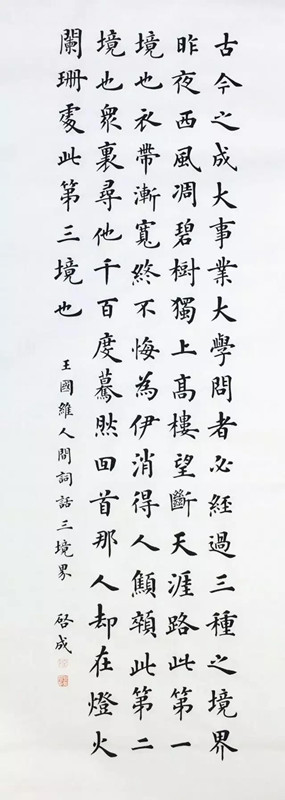 古今之成大事業大學問者必經過三種之境界
昨夜西風凋碧樹獨上高樓望斷天涯路此第一
境也衣帶漸寬終不悔為伊消得人顦顇此第二
境也衆裏尋他千百度驀然回首那人却在燈火
闌珊處此第三境也
王國維人間詞話三境界 啓成